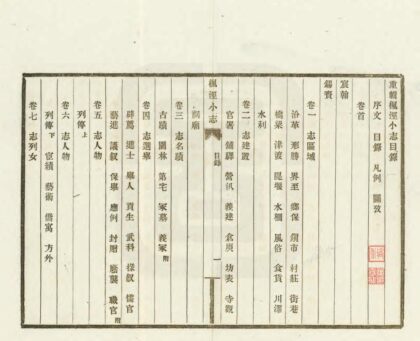 重輯楓涇小志目錄
序文 目錄 凡例 圖攷
卷首
宸翰
錫賚
卷一 志區域
沿革 形勝 界至 鄉保 鎮市 村莊 街巷
橋梁 津渡 隄堰 水柵 風俗 食貨 川澤
水利
卷二 志建置
官署 舖驛 營汛 義建 倉庾 坊表 寺觀
楓涇小志 目錄 一
祠廟
卷三 志名蹟
古蹟 園林 第宅 冢墓 義冢附
卷四 志選舉
辟薦 進士 舉人 貢生 武科 掾敘 儒官
藝進 議敘 保舉 應例 封贈 廕襲 職官附
卷五 志人物
列傳上
卷六 志人物
列傳下 宦績 藝術 僑寓 方外
卷七 志列女